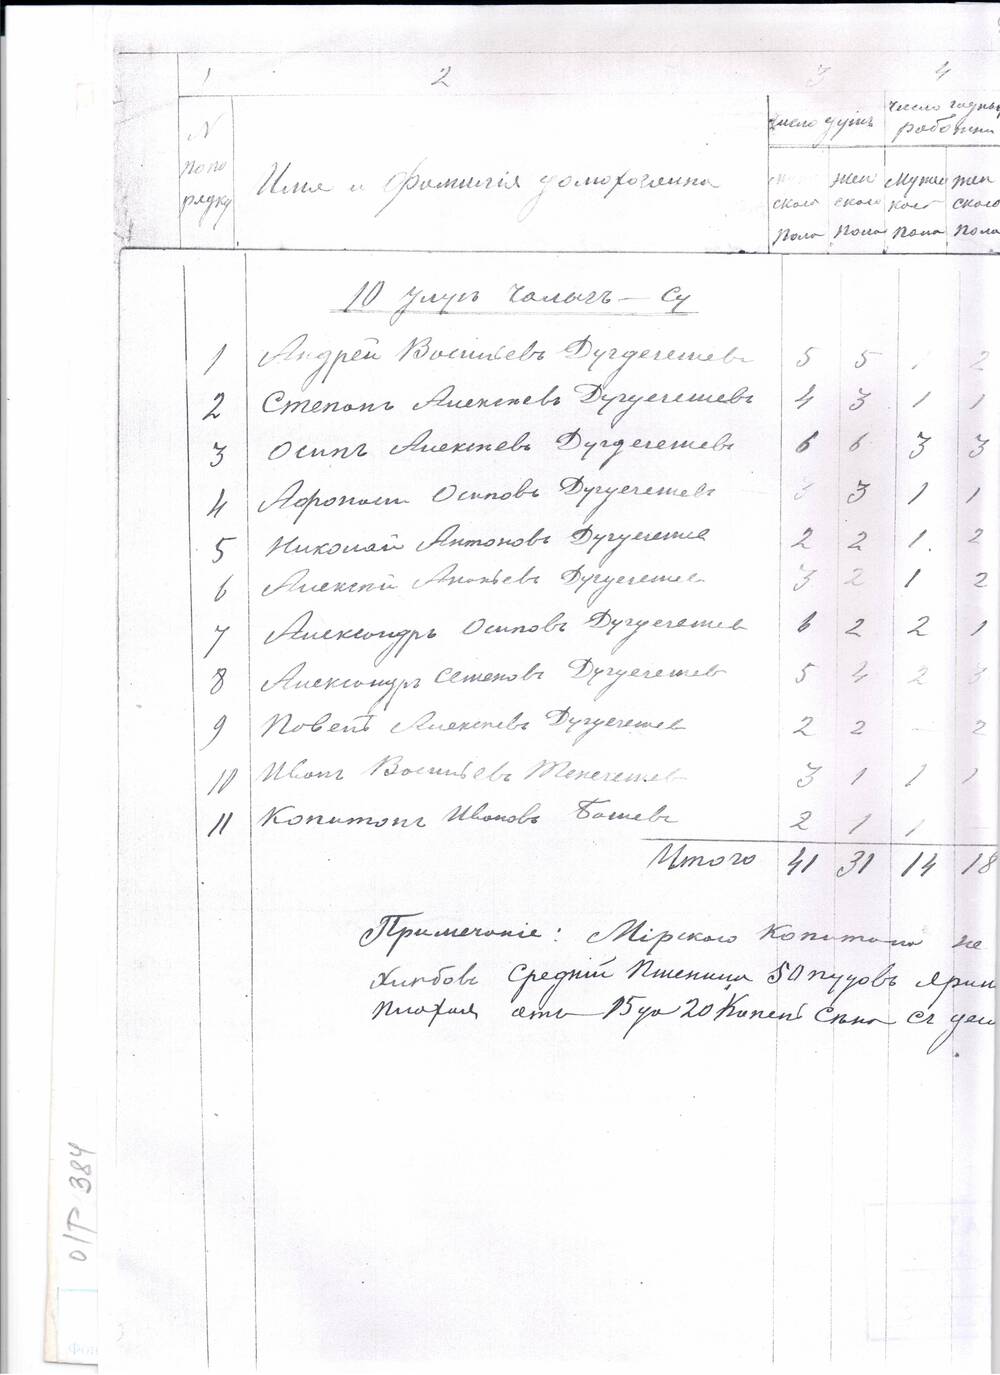 1 2 3 4
N попо рядку
Имя и фамилія домохозяина
Число душъ
Число годны работни
ского пола
Жен ского пола
Мужес кого пола
жен ского пола
10 Улусъ Чалычъ-Су
1 Андрей Васильевъ Дугдегешевъ 5 5 2
2 Степанъ Алексѣевъ Дугдегешевъ 4 3 1 1
3 Осипъ Алексѣевъ Дугдегешевъ 6 6 3 3
4 Афонаси Осиповъ Дугдегешевъ 3 3 1 1
5 Николай Антоновъ Дугдегеше 2 2 1 2
6 Алексѣй Дугдегешев 3 2 1 2
7 Александръ Осиповъ Дугдегешев 6 2 2 1
8 Александръ Степановъ Дугдегешев 5 4 2 3
9 Повелъ Алексѣевъ Дугдегешев 2 2 — 2
10 Иванъ Васильевъ Тенегешев 3 1 1 1
11 Капитонъ Ивановъ Башевъ 2 1 1 —
Итого 41 31 14 18
Примечаніе: Мірского Копитала не
Хлѣбовъ Средній Пшеница 50 пудовъ Ярин
Плохая отъ 15 до 20 Копенъ Сѣна съ деся
о/Р 384